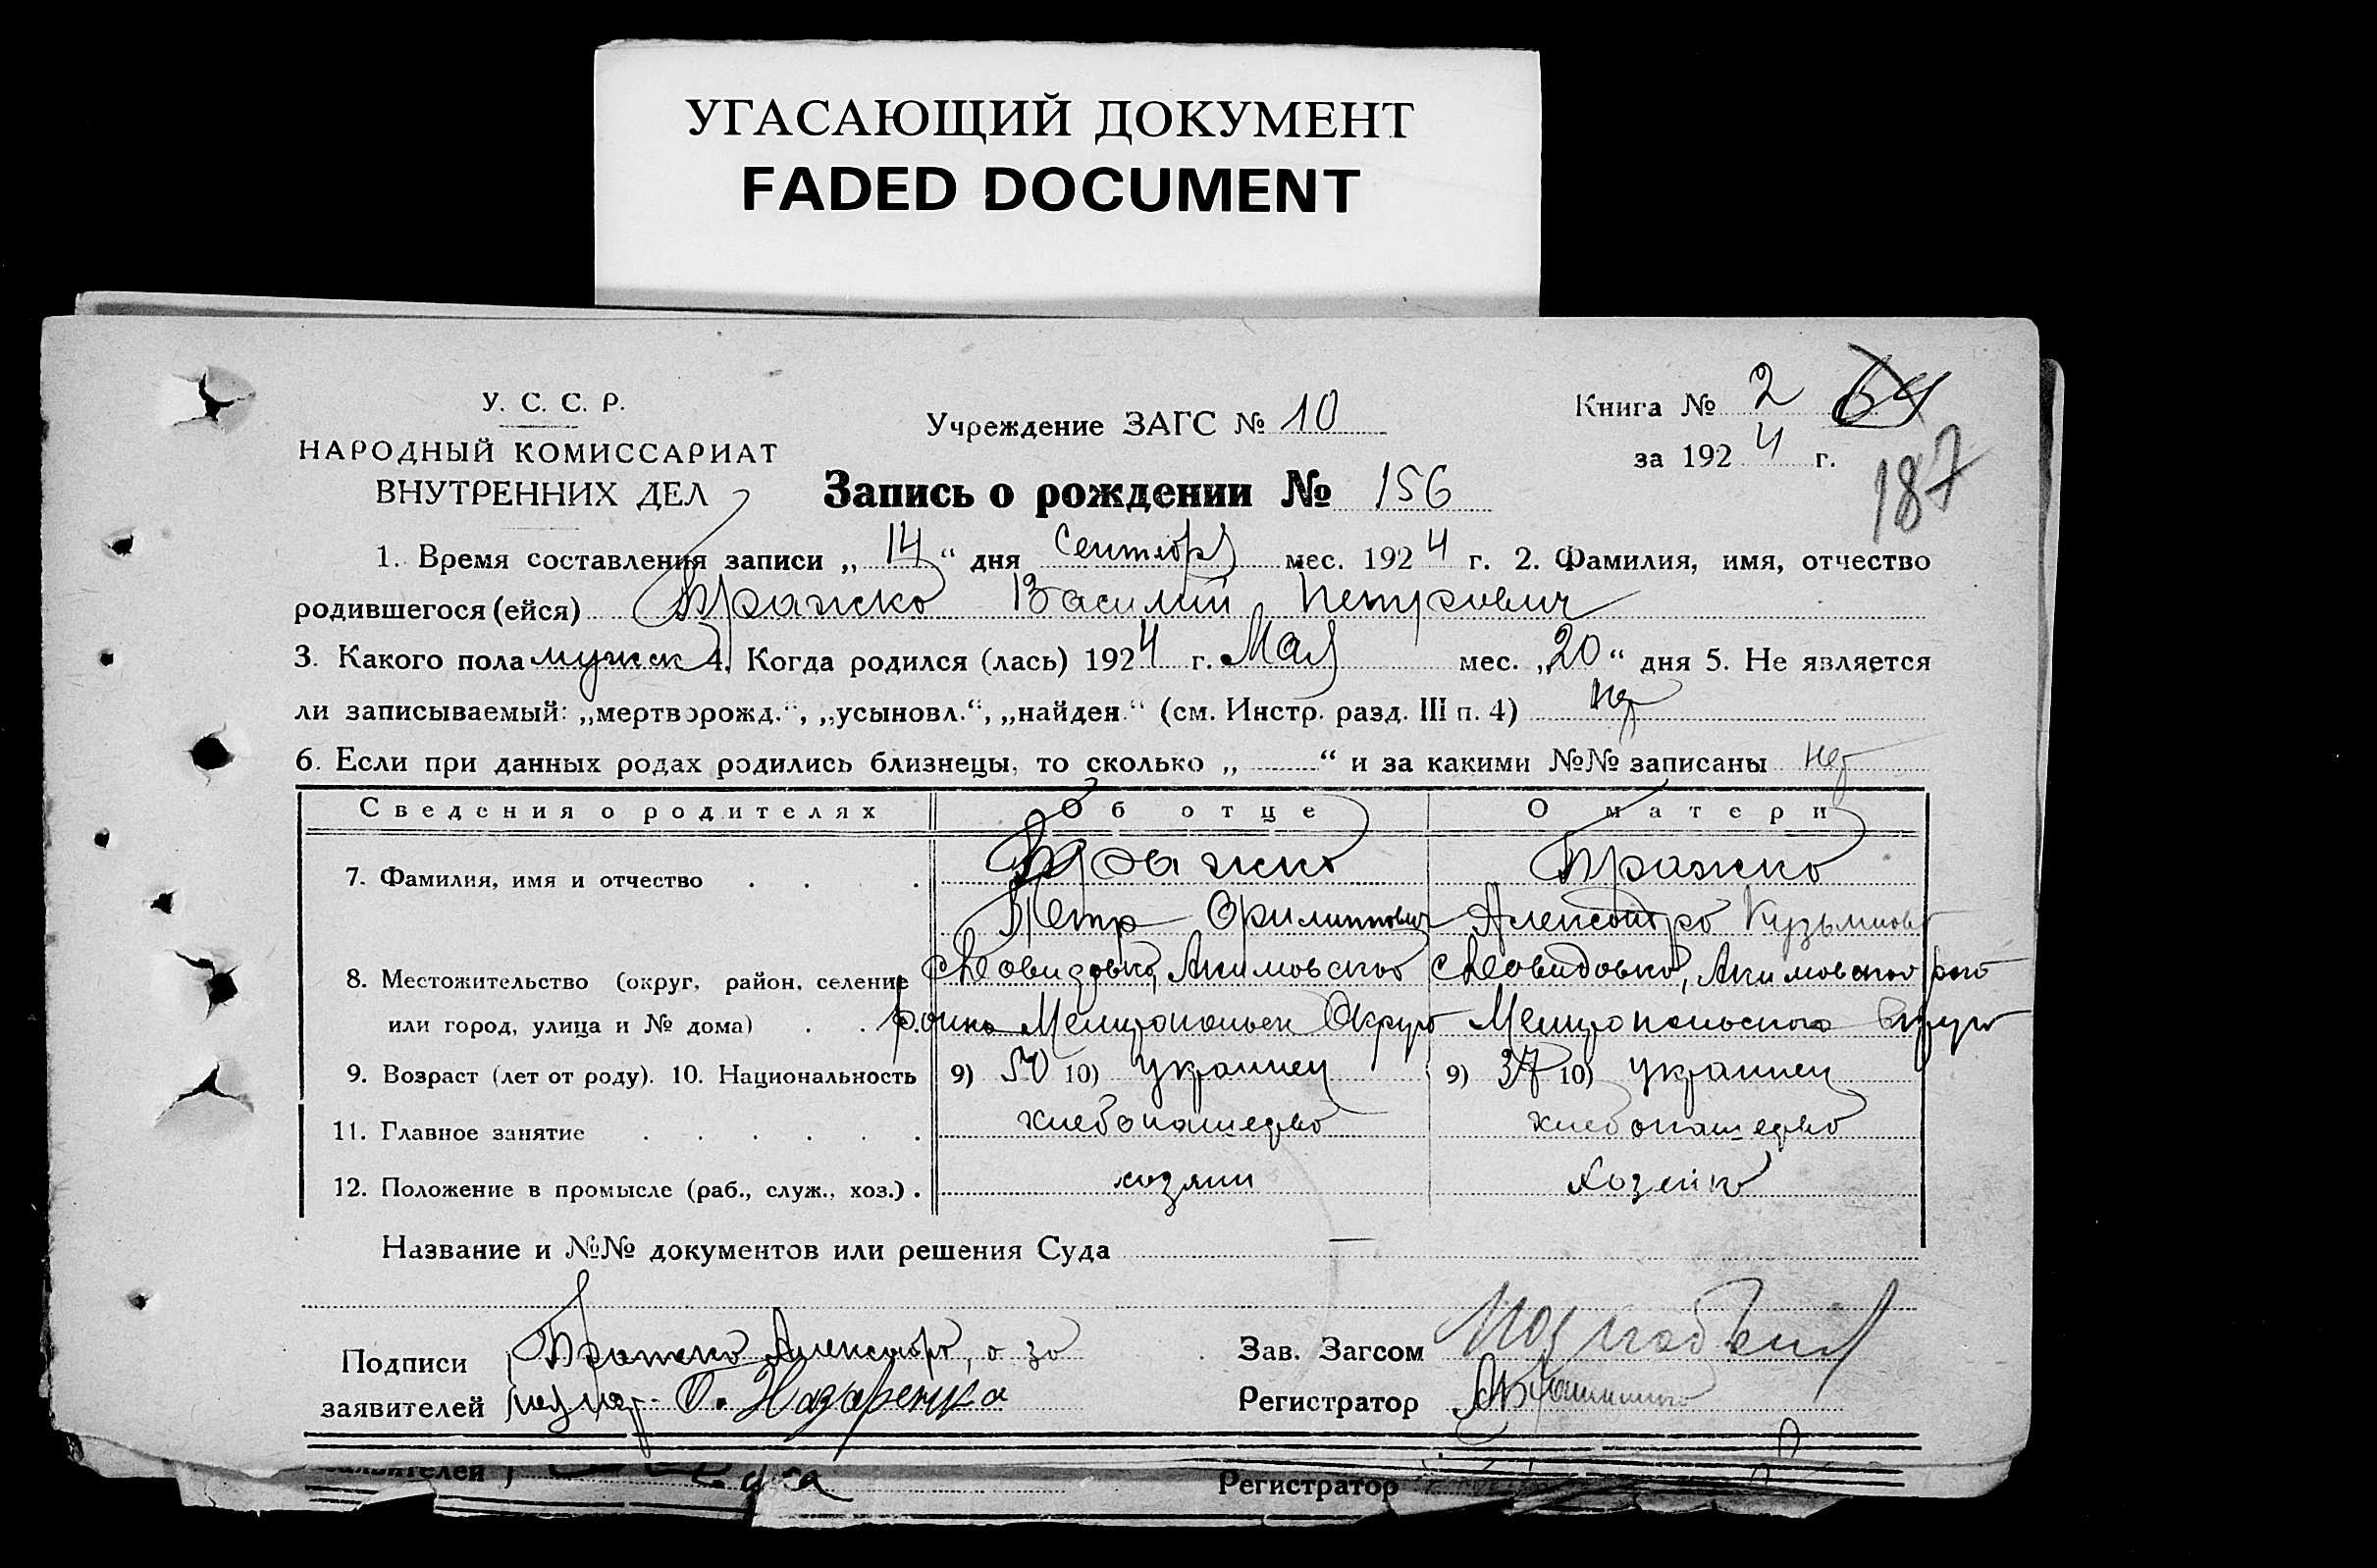 УГАСАЮЩИЙ ДОКУМЕНТ
FADED DOCUMENT
У. С. С. Р.
НАРОДНЫЙ КОМИССАРИАТ
ВНУТРЕННИХ ДЕЛ
Учреждение ЗАГС № 10
Книга № 2 64
за 1924 г.
187
Запись о рождении № 156
1. Время составления записи „14“ дня Сентября мес. 1924 г. 2. Фамилия, имя, отчество
родившегося (ейся) Бражко Василий Петрович
3. Какого пола мужск 4. Когда родился (лась) 1924 г. Мая мес. „20“ дня 5. Не является
ли записываемый: „мертворожд.“, „усыновл.“, „найден.“ (см. Инстр. разд. III п. 4) нет
6. Если при данных родах родились близнецы, то сколько „ “ и за какими №№ записаны нет
Сведения о родителях Об отце О матери
7. Фамилия, имя и отчество Бражко Бражко
Петр Филиппович Александра Кузьминовна
8. Местожительство (округ, район, селение Акимовского Акимовского
или город, улица и № дома) района Мелитопольск Округа Мелитопольского округа
9. Возраст (лет от роду). 10. Национальность 9) 50 10) украинец 9) 37 10) украинец
11. Главное занятие хлебопашество хлебопашество
12. Положение в промысле (раб., служ., хоз.) хозяин хозяйка
Название и №№ документов или решения Суда —
Подписи Бражко Александра, а за
заявителей Назаренко
Зав. Загсом
Регистратор
заявителей
Регистратор